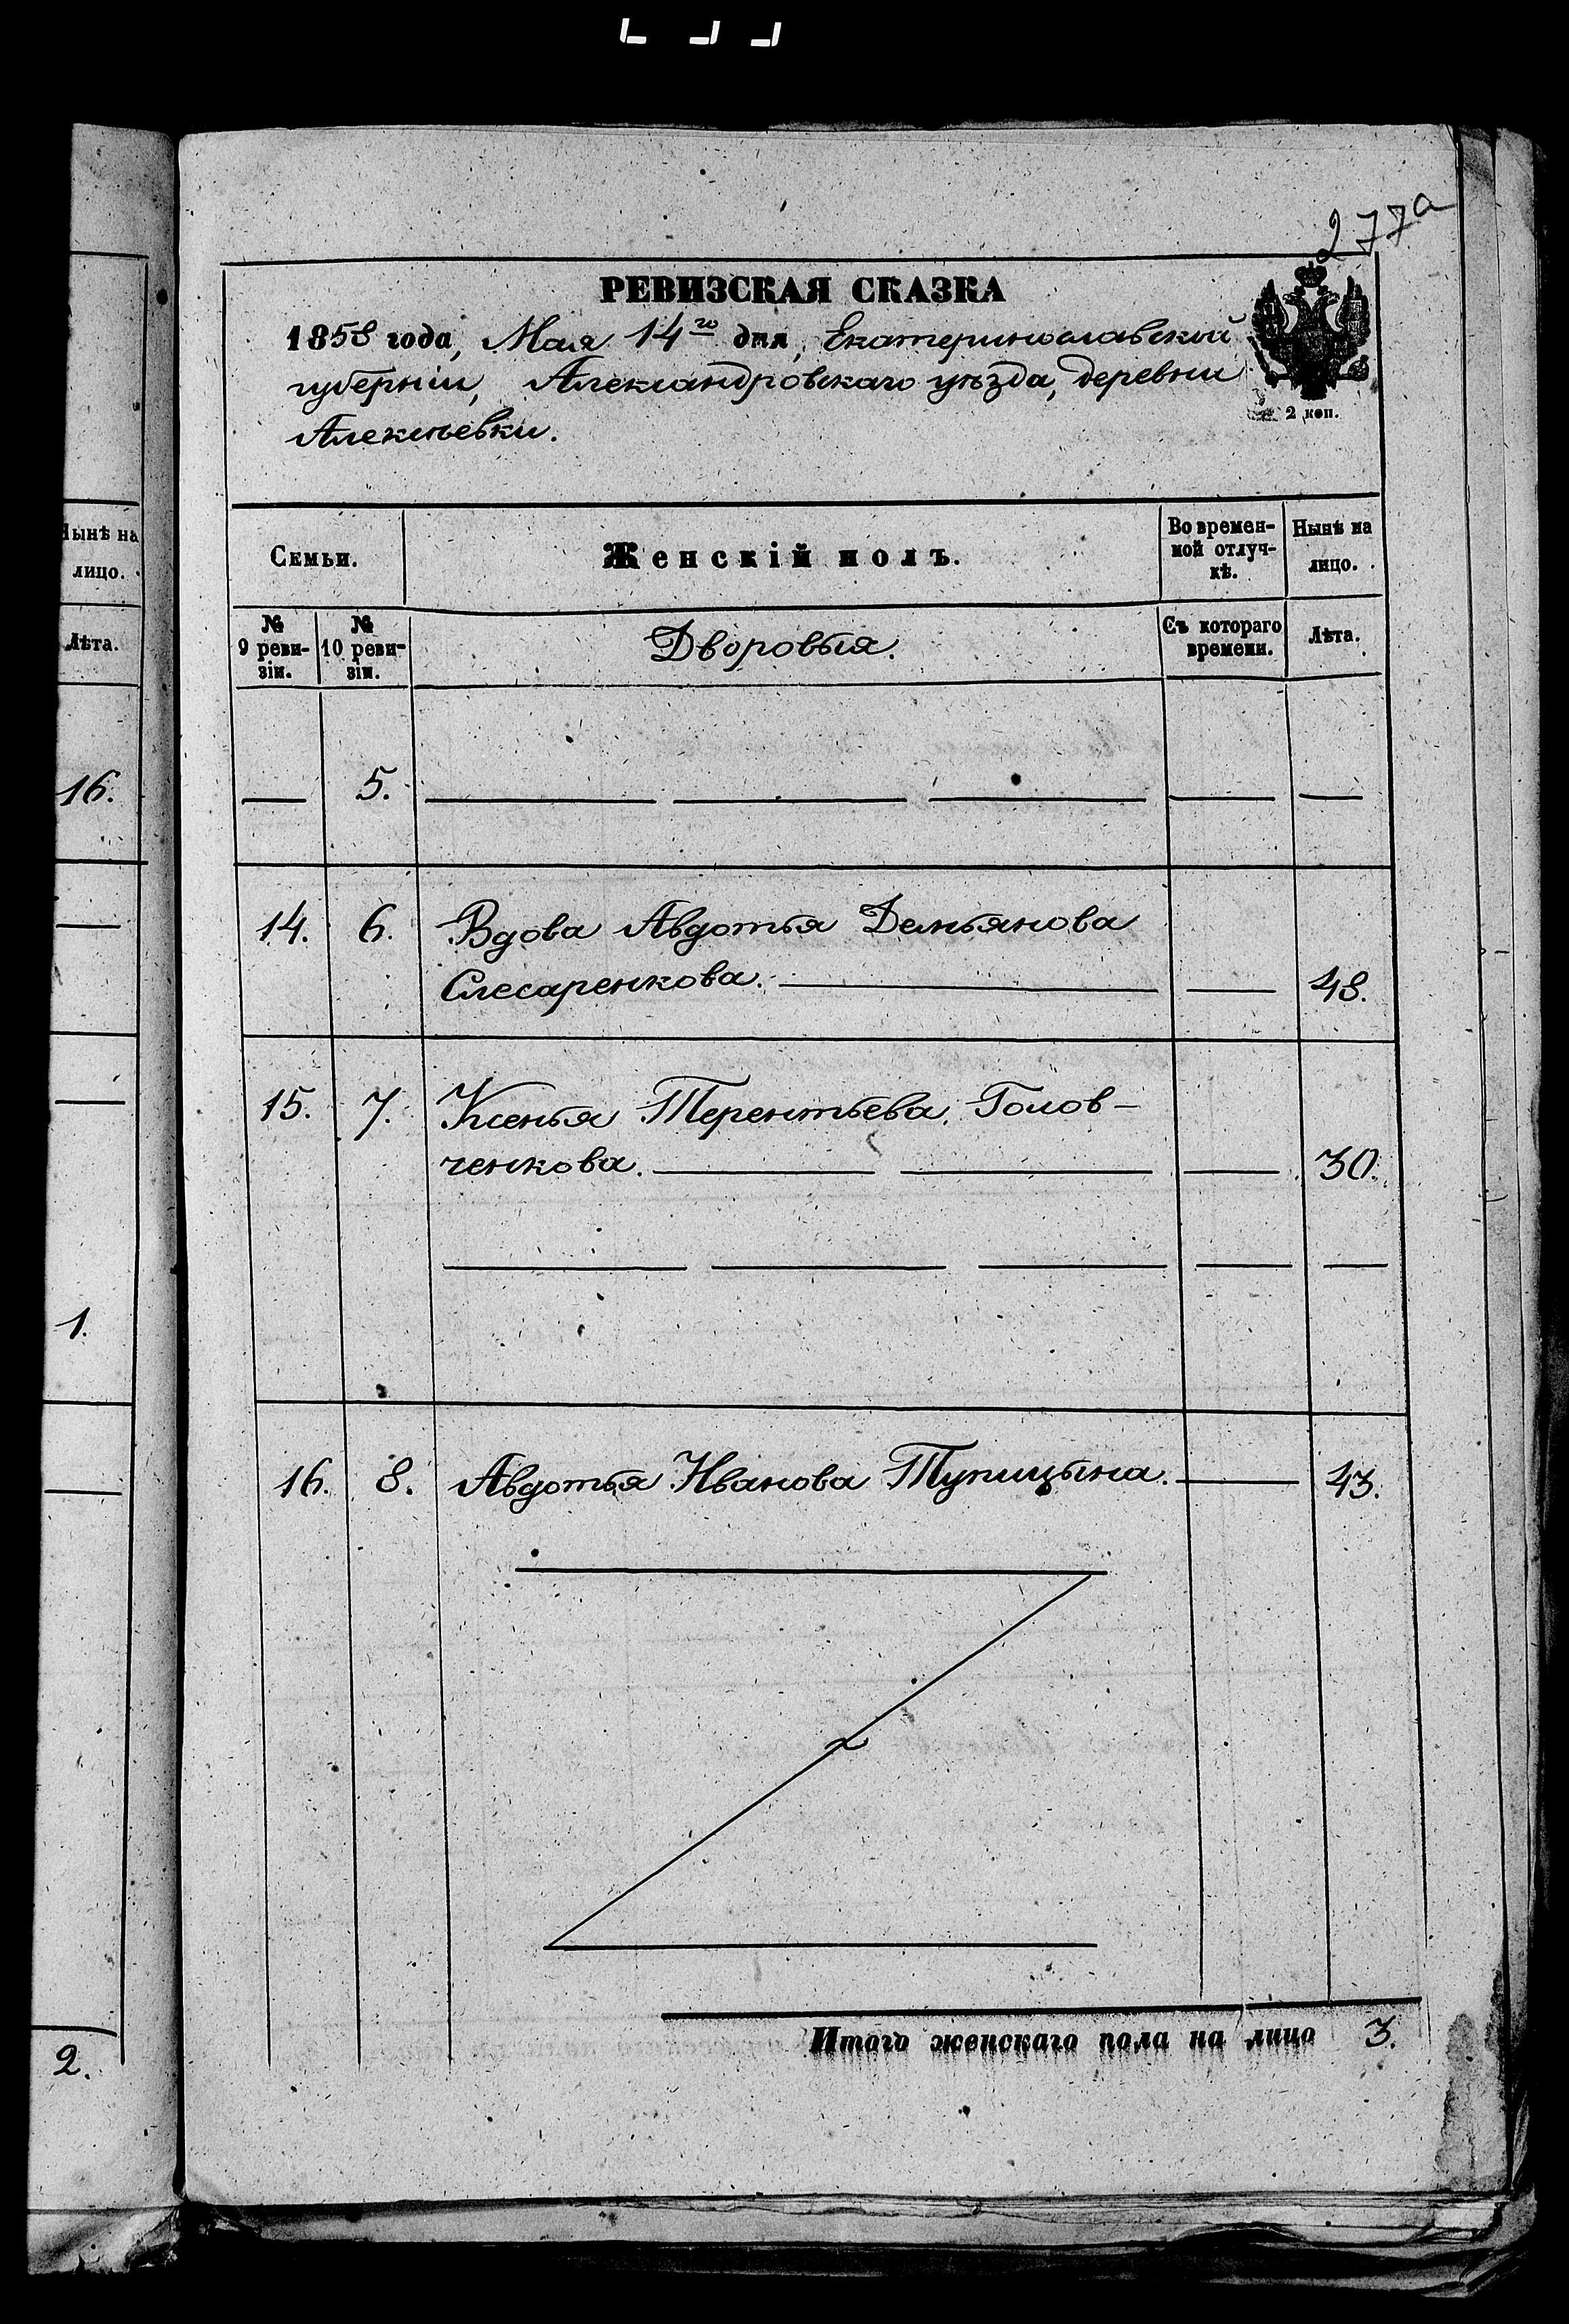 277а
РЕВИЗСКАЯ СКАЗКА
1858 года, Мая 14го дня, Екатеринославской
губерніи, Александровскаго уѣзда, деревни
Алексѣевки.
2 коп.
Нынѣ на
лицо.
Лѣта.
16.
1.
2.
Семьи.
Женскій полъ.
Во времен-
ной отлуч-
кѣ.
Нынѣ на
лицо.
№
9 реви-
зіи.
№
10 реви-
зіи.
Дворовыя.
Съ котораго
времени.
Лѣта.
5.
14. 6. Вдова Авдотья Демьянова
Слесаренкова. 48.
15. 7. Ксенья Терентьева Голов-
ченкова. 30.
16. 8. Авдотья Иванова Тупицына. 43.
Итого женскаго пола на лицо 3.